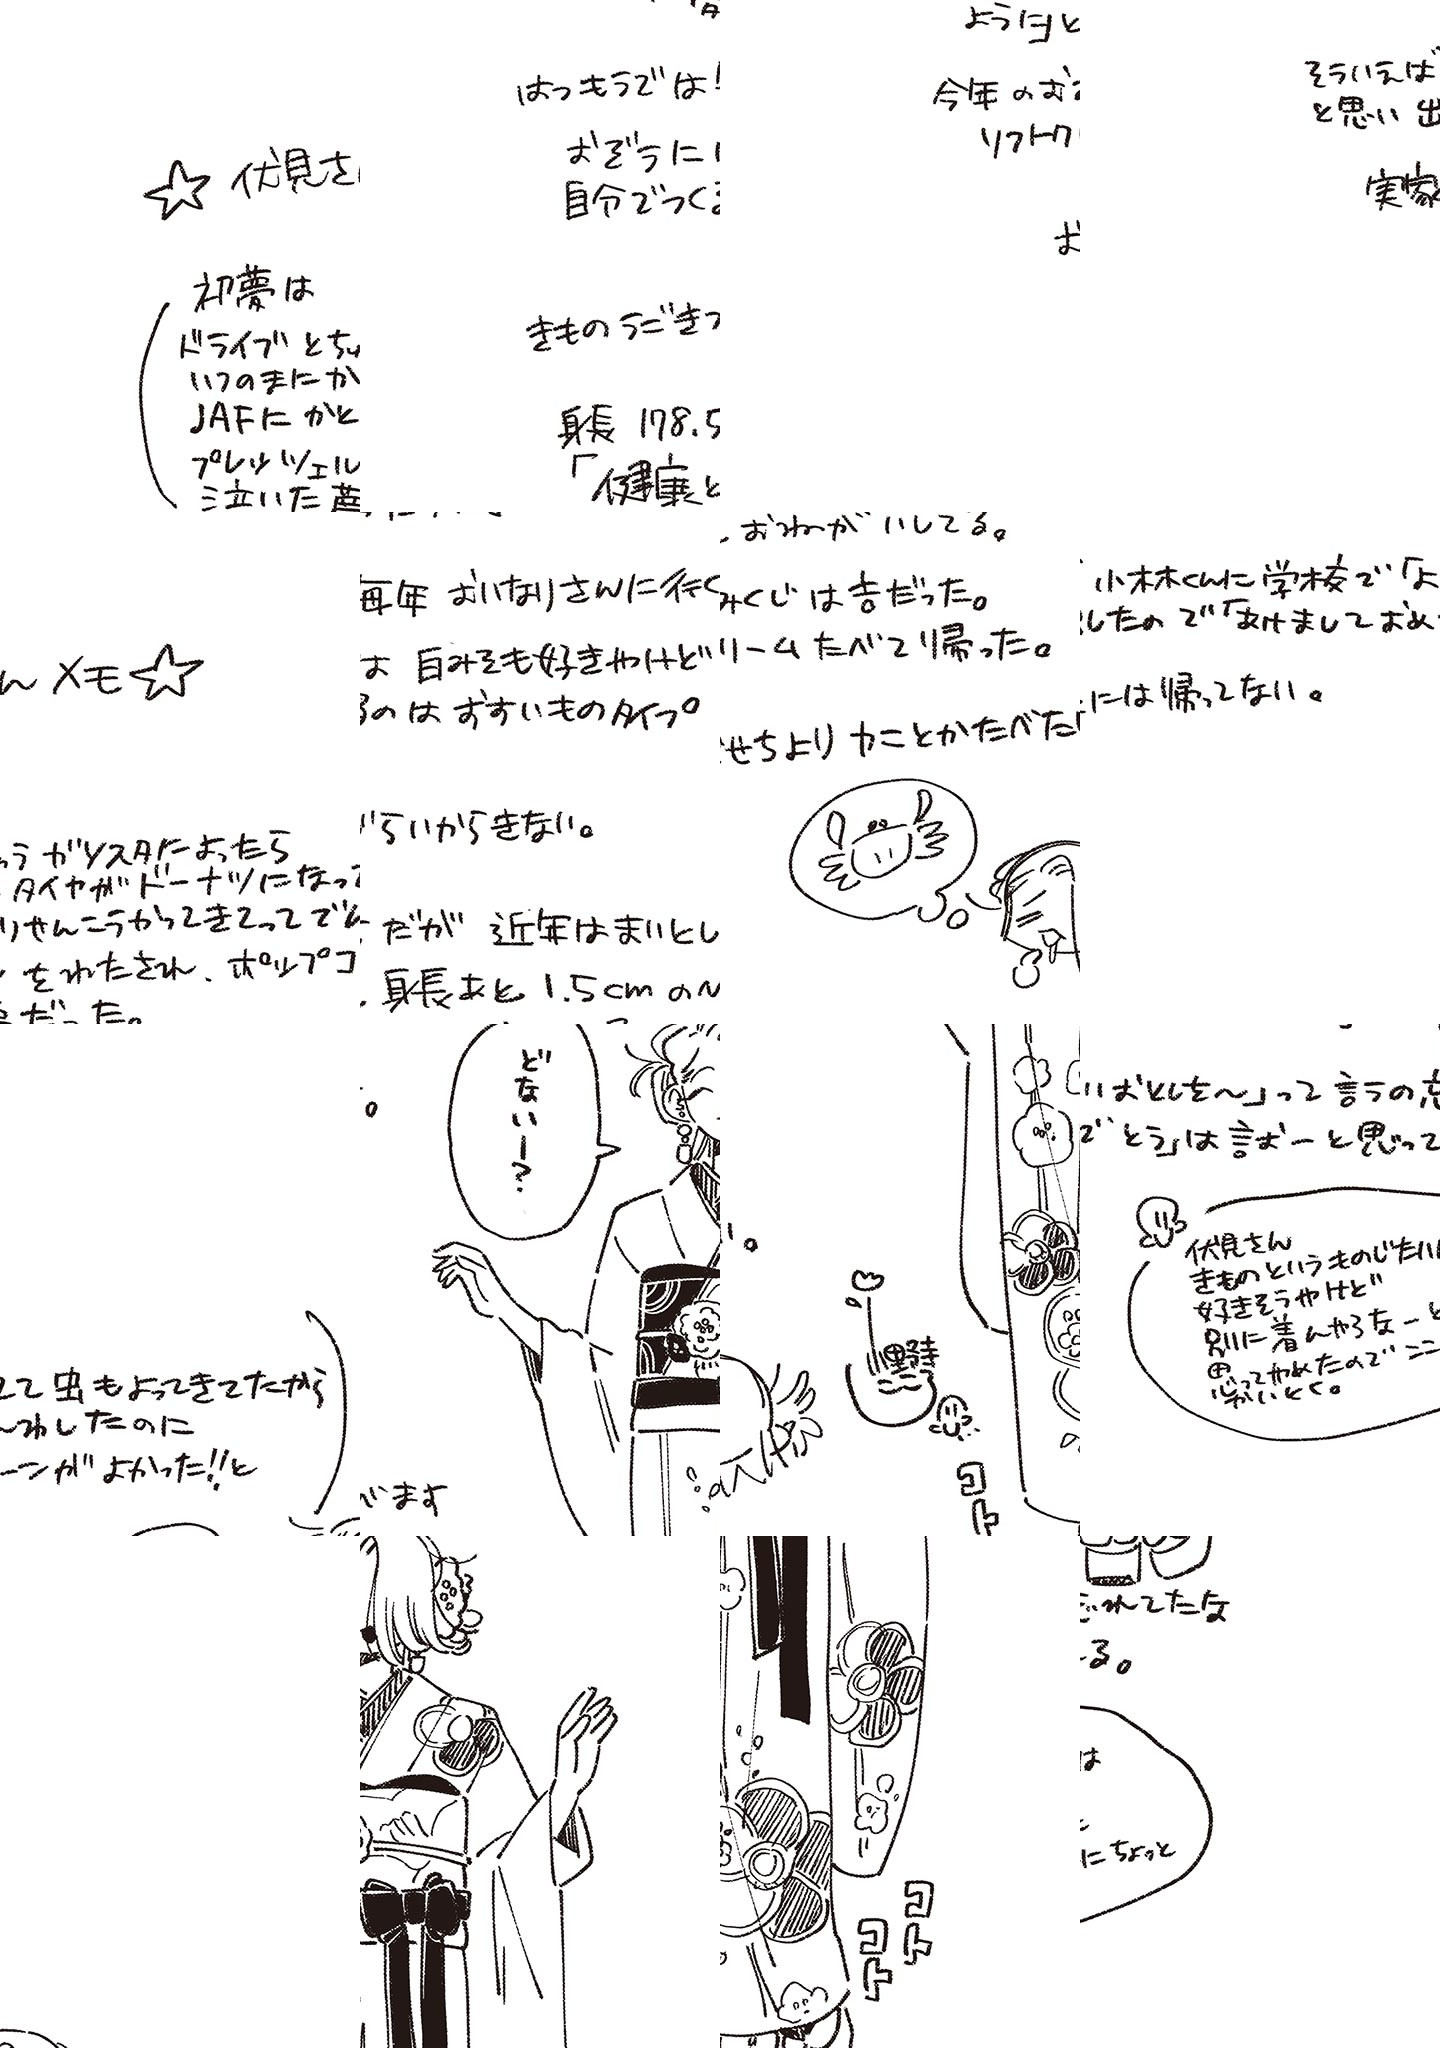 ☆伏見さんメモ☆
初夢は
ドライブとちゅうガソスタによったら
いつのまにかタイヤがドーナツになってて虫もよってきてたから
JAFにかとりせんこうかってきてってでんわしたのに
プレッツェルをわたされ、ポップコーンがよかった!!と
泣いた夢だった。
はつもうでは毎年おいなりさんに行く。
おぞうには白みそも好きやけど
自分でつくるのはおすいものタイプ。
きものうごきづらいからきない。
身長178.5だが近年はまいとし
「健康と、身長あと1.5cmのびますように」とおねがいしてる。
どないー?
今年のおみくじは吉だった。
ソフトクリームたべて帰った。
おせちよりカニとかたべたい。
コト
コト
コト
そういえば小林くんに学校で「よいおとしを〜」って言うの忘れてたな
と思い出したので「あけましておめでとう」は言おーと思ってる。
実家には帰ってない。
伏見さん
きものというものじたいは
好きそうやけど
別に着んやろなーと
思ってやめたのでここにちょっと
かいとく。